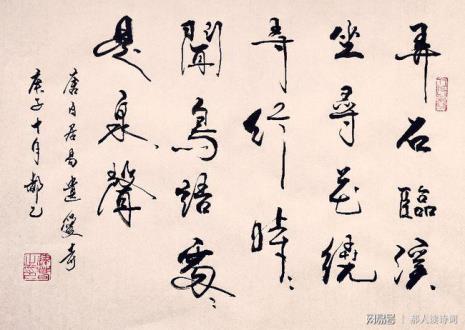 弄石臨溪
坐尋花繞
寺行時〻
聞鳥語處〻
是泉聲
唐白居易遺愛寺
庚子十月郝
网易号 | 郝人诗词